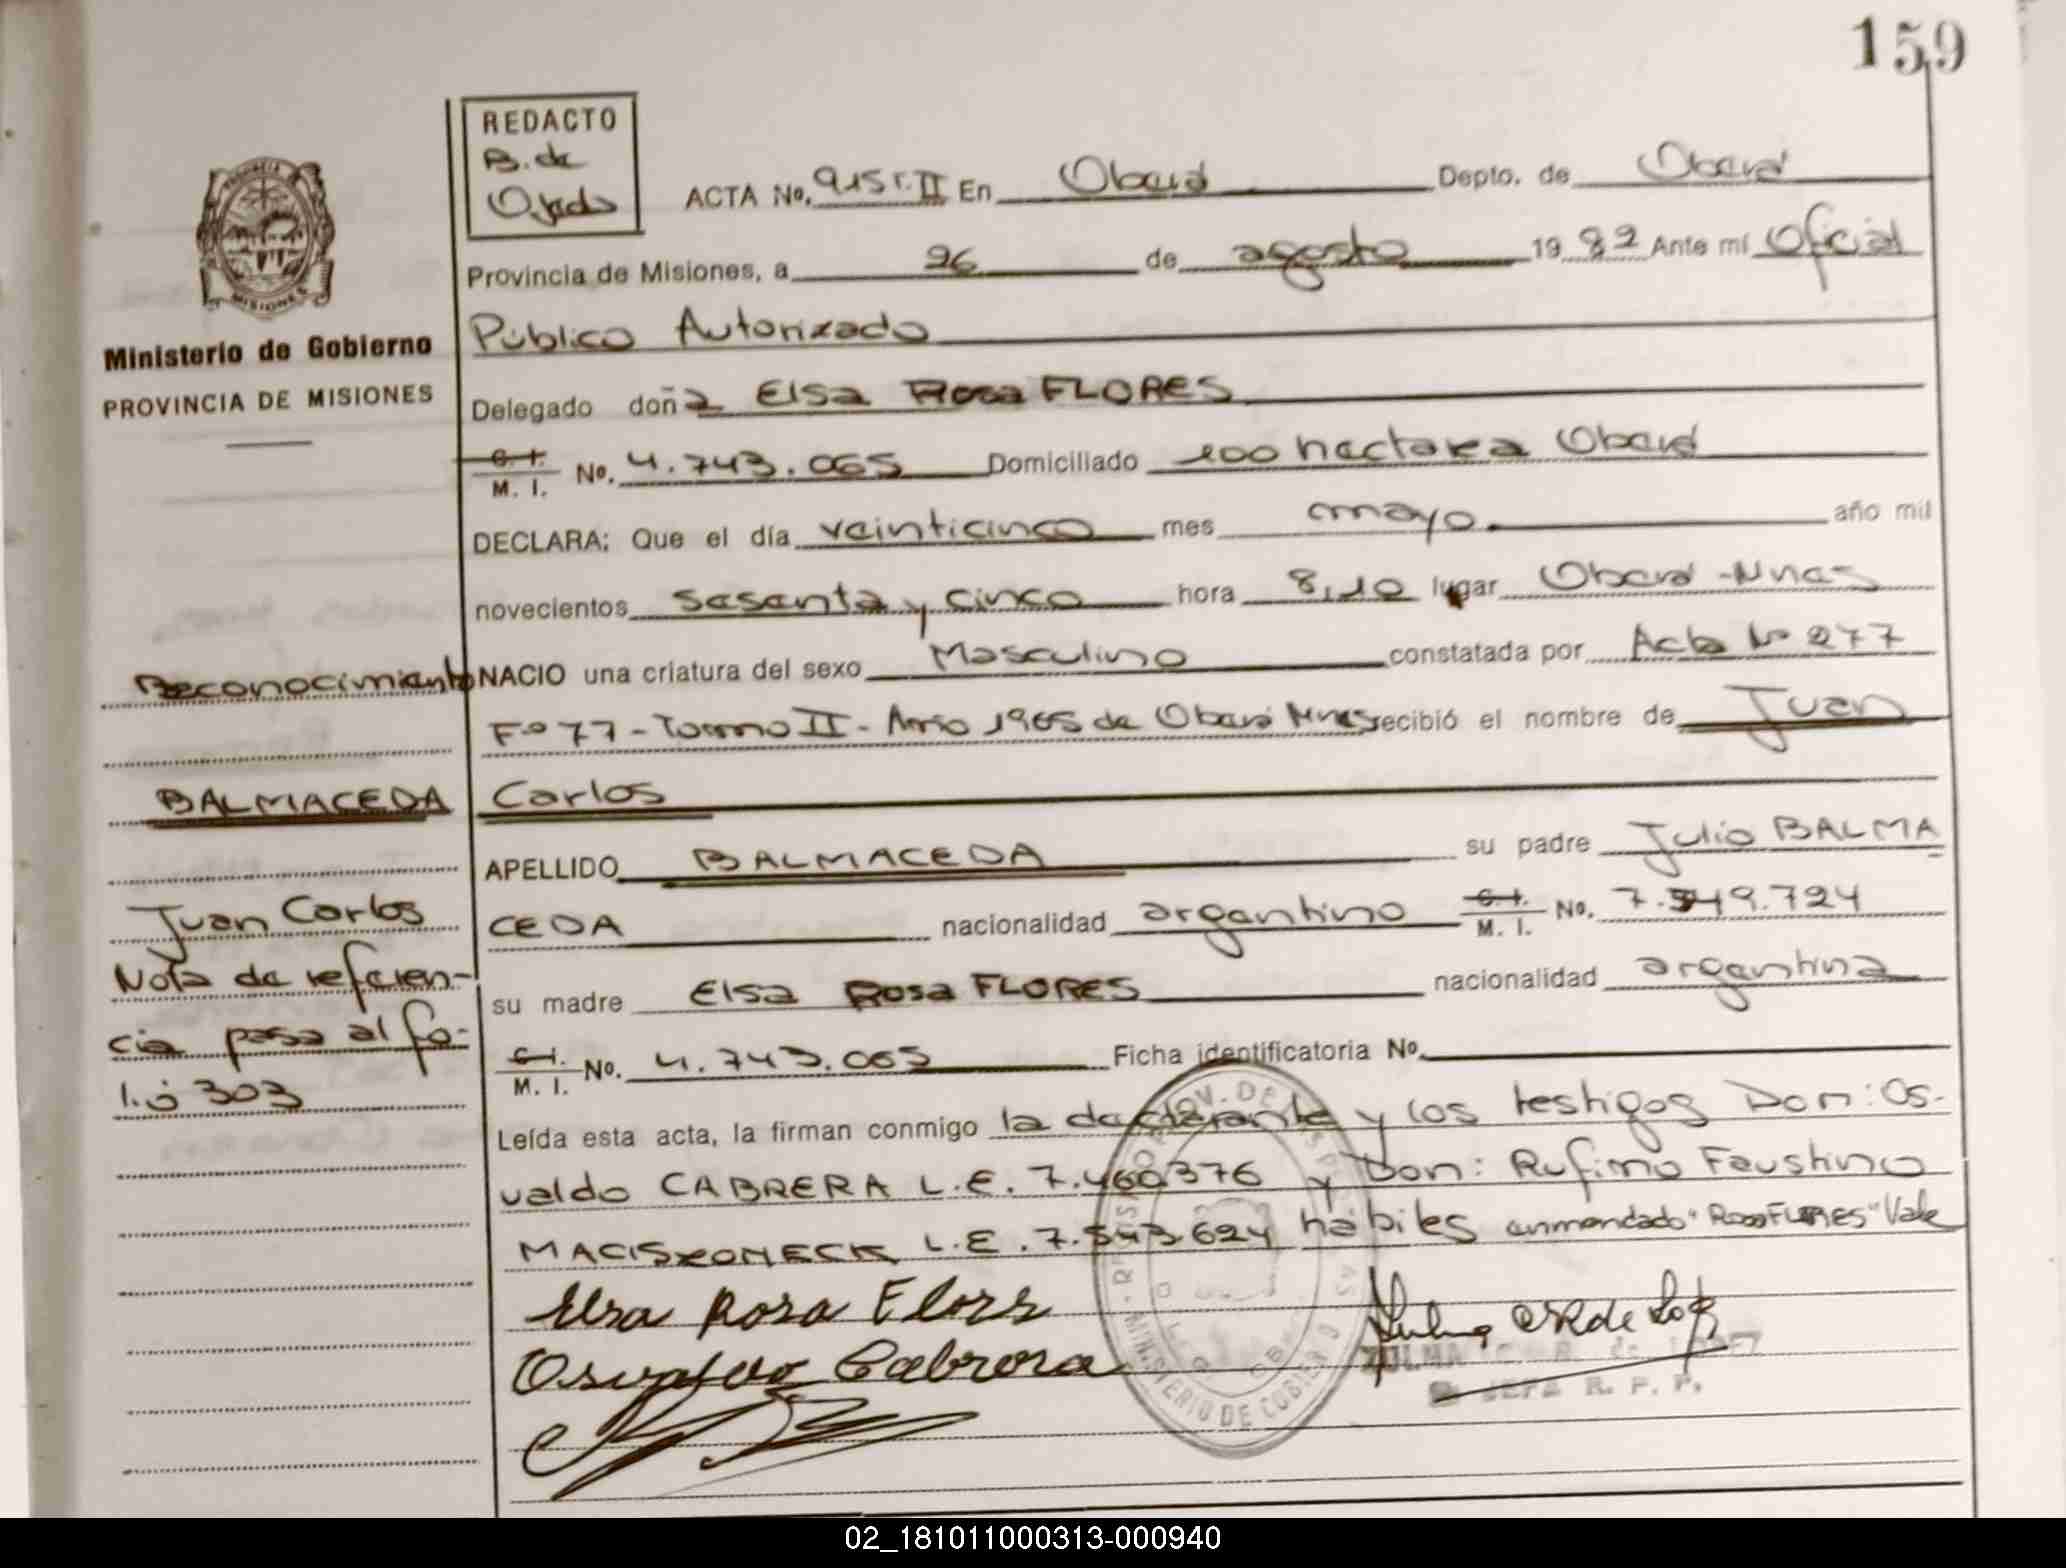 159
REDACTO
B. de
Ojeda
ACTA No. 915 T. II En Oberá Depto. de Oberá
Provincia de Misiones, a 26 de agosto 1982 Ante mí Oficial
Público Autorizado
Ministerio de Gobierno
PROVINCIA DE MISIONES
Delegado doña Elsa Rosa FLORES
C. I.
M. I. No. 4.743.065 Domiciliado 100 hectarea Oberá
DECLARA: Que el día veinticinco mes mayo año mil
novecientos sesenta y cinco hora 8,10 lugar Oberá - Mnes
Reconocimiento
NACIO una criatura del sexo Masculino constatada por Acta Nº 277
Fº 77 - Tomo II - Año 1965 de Oberá Mnes recibió el nombre de Juan
BALMACEDA
Carlos
APELLIDO BALMACEDA su padre Julio BALMA
Juan Carlos
CEDA nacionalidad argentino C. I.
M. I. No. 7.549.724
Nota de referen-
cia pasa al fo-
lio 303
su madre Elsa Rosa FLORES nacionalidad argentina
C. I.
M. I. No. 4.743.065 Ficha identificatoria No.
Leída esta acta, la firman conmigo la declarante y los testigos Don: Os-
valdo CABRERA L.E. 7.460376 y Don: Rufino Faustino
L.E. 7.543.624 hábiles enmendado "Rosa FLORES" Vale
Elsa Rosa Flores
Osvaldo Cabrera
ZULMA
JEFA R. P. P.
MINISTERIO DE GOBIERNO
02_181011000313-000940